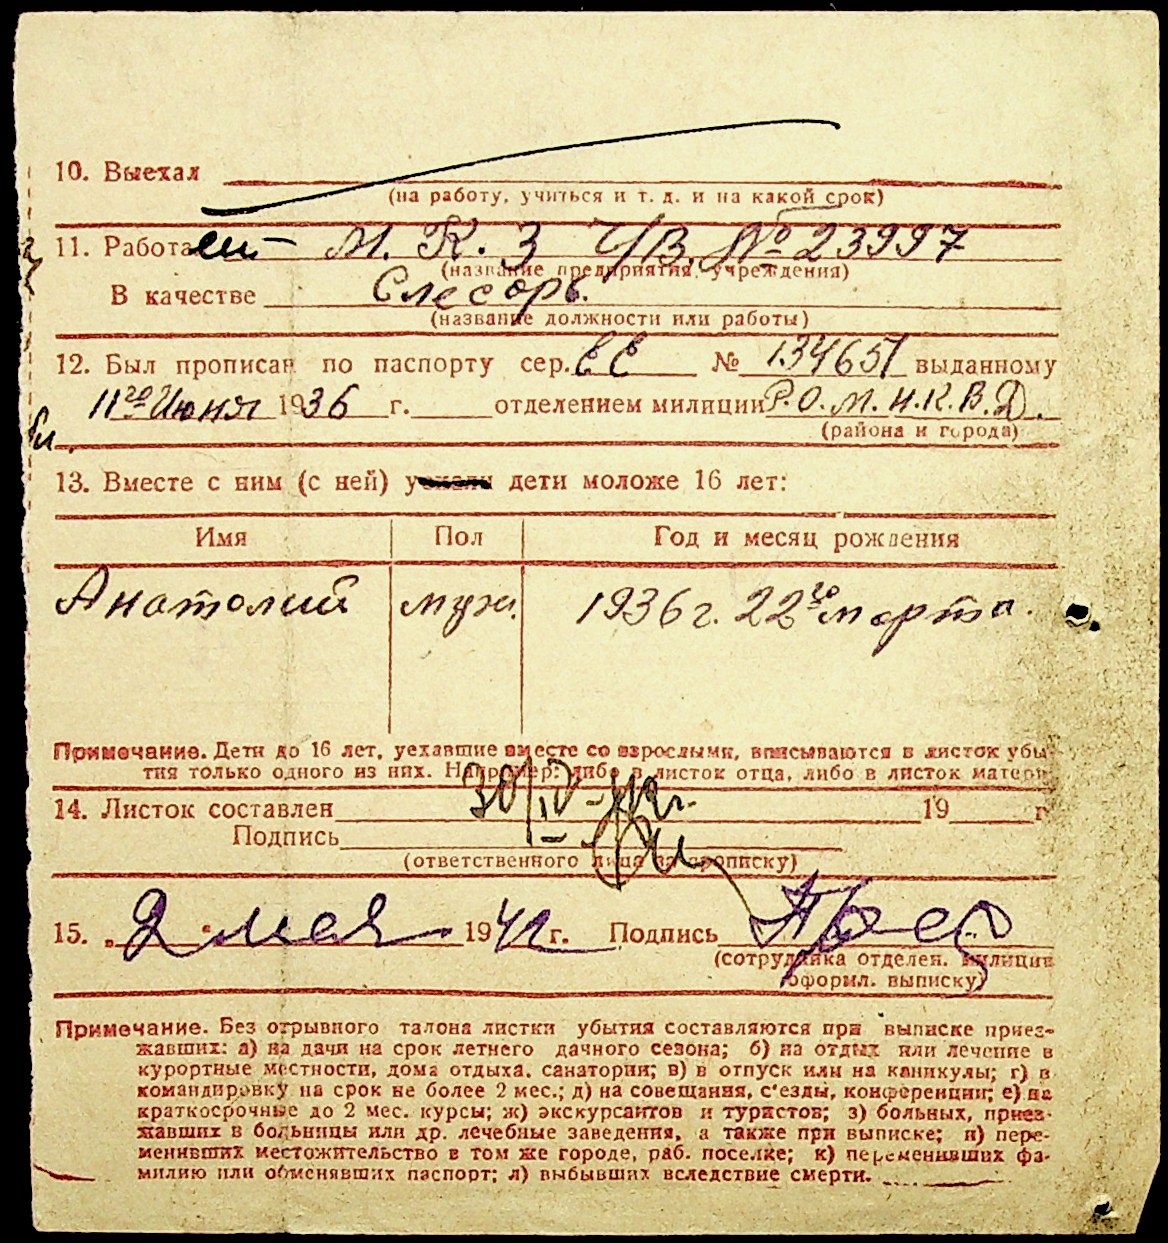 10. Выехал
(на работу, учиться и т. д. и на какой срок)
11. Работает М. К. З Ч/В. № 23997
(название предприятия, учреждения)
В качестве Слесарь.
(название должности или работы)
12. Был прописан по паспорту сер. ЕЕ № 134651 выданному
11го Июня 1936 г. отделением милиции Р.О.М.Н.К.В.Д.
(района и города)
13. Вместе с ним (с ней) уехали дети моложе 16 лет:
Имя Пол Год и месяц рождения
Анатолий муж. 1936 г. 22го марта.
Примечание. Дети до 16 лет, уехавшие вместе со взрослыми, вписываются в листок убы-
тия только одного из них. Например: либо в листок отца, либо в листок матери.
14. Листок составлен 30/IV-42 г. 19 г
Подпись
(ответственного лица за прописку)
15. „2“ мая 1942 г. Подпись
(сотрудника отделен. милиции
оформл. выписку)
Примечание. Без отрывного талона листки убытия составляются при выписке приез-
жавших: а) на дачи на срок летнего дачного сезона; б) на отдых или лечение в
курортные местности, дома отдыха, санатории; в) в отпуск или на каникулы; г) в
командировку на срок не более 2 мес.; д) на совещания, с'езды, конференции; е) на
краткосрочные до 2 мес. курсы; ж) экскурсантов и туристов; з) больных, приез-
жавших в больницы или др. лечебные заведения, а также при выписке; и) пере-
менивших местожительство в том же городе, раб. поселке; к) переменивших фа-
милию или обменявших паспорт; л) выбывших вследствие смерти.